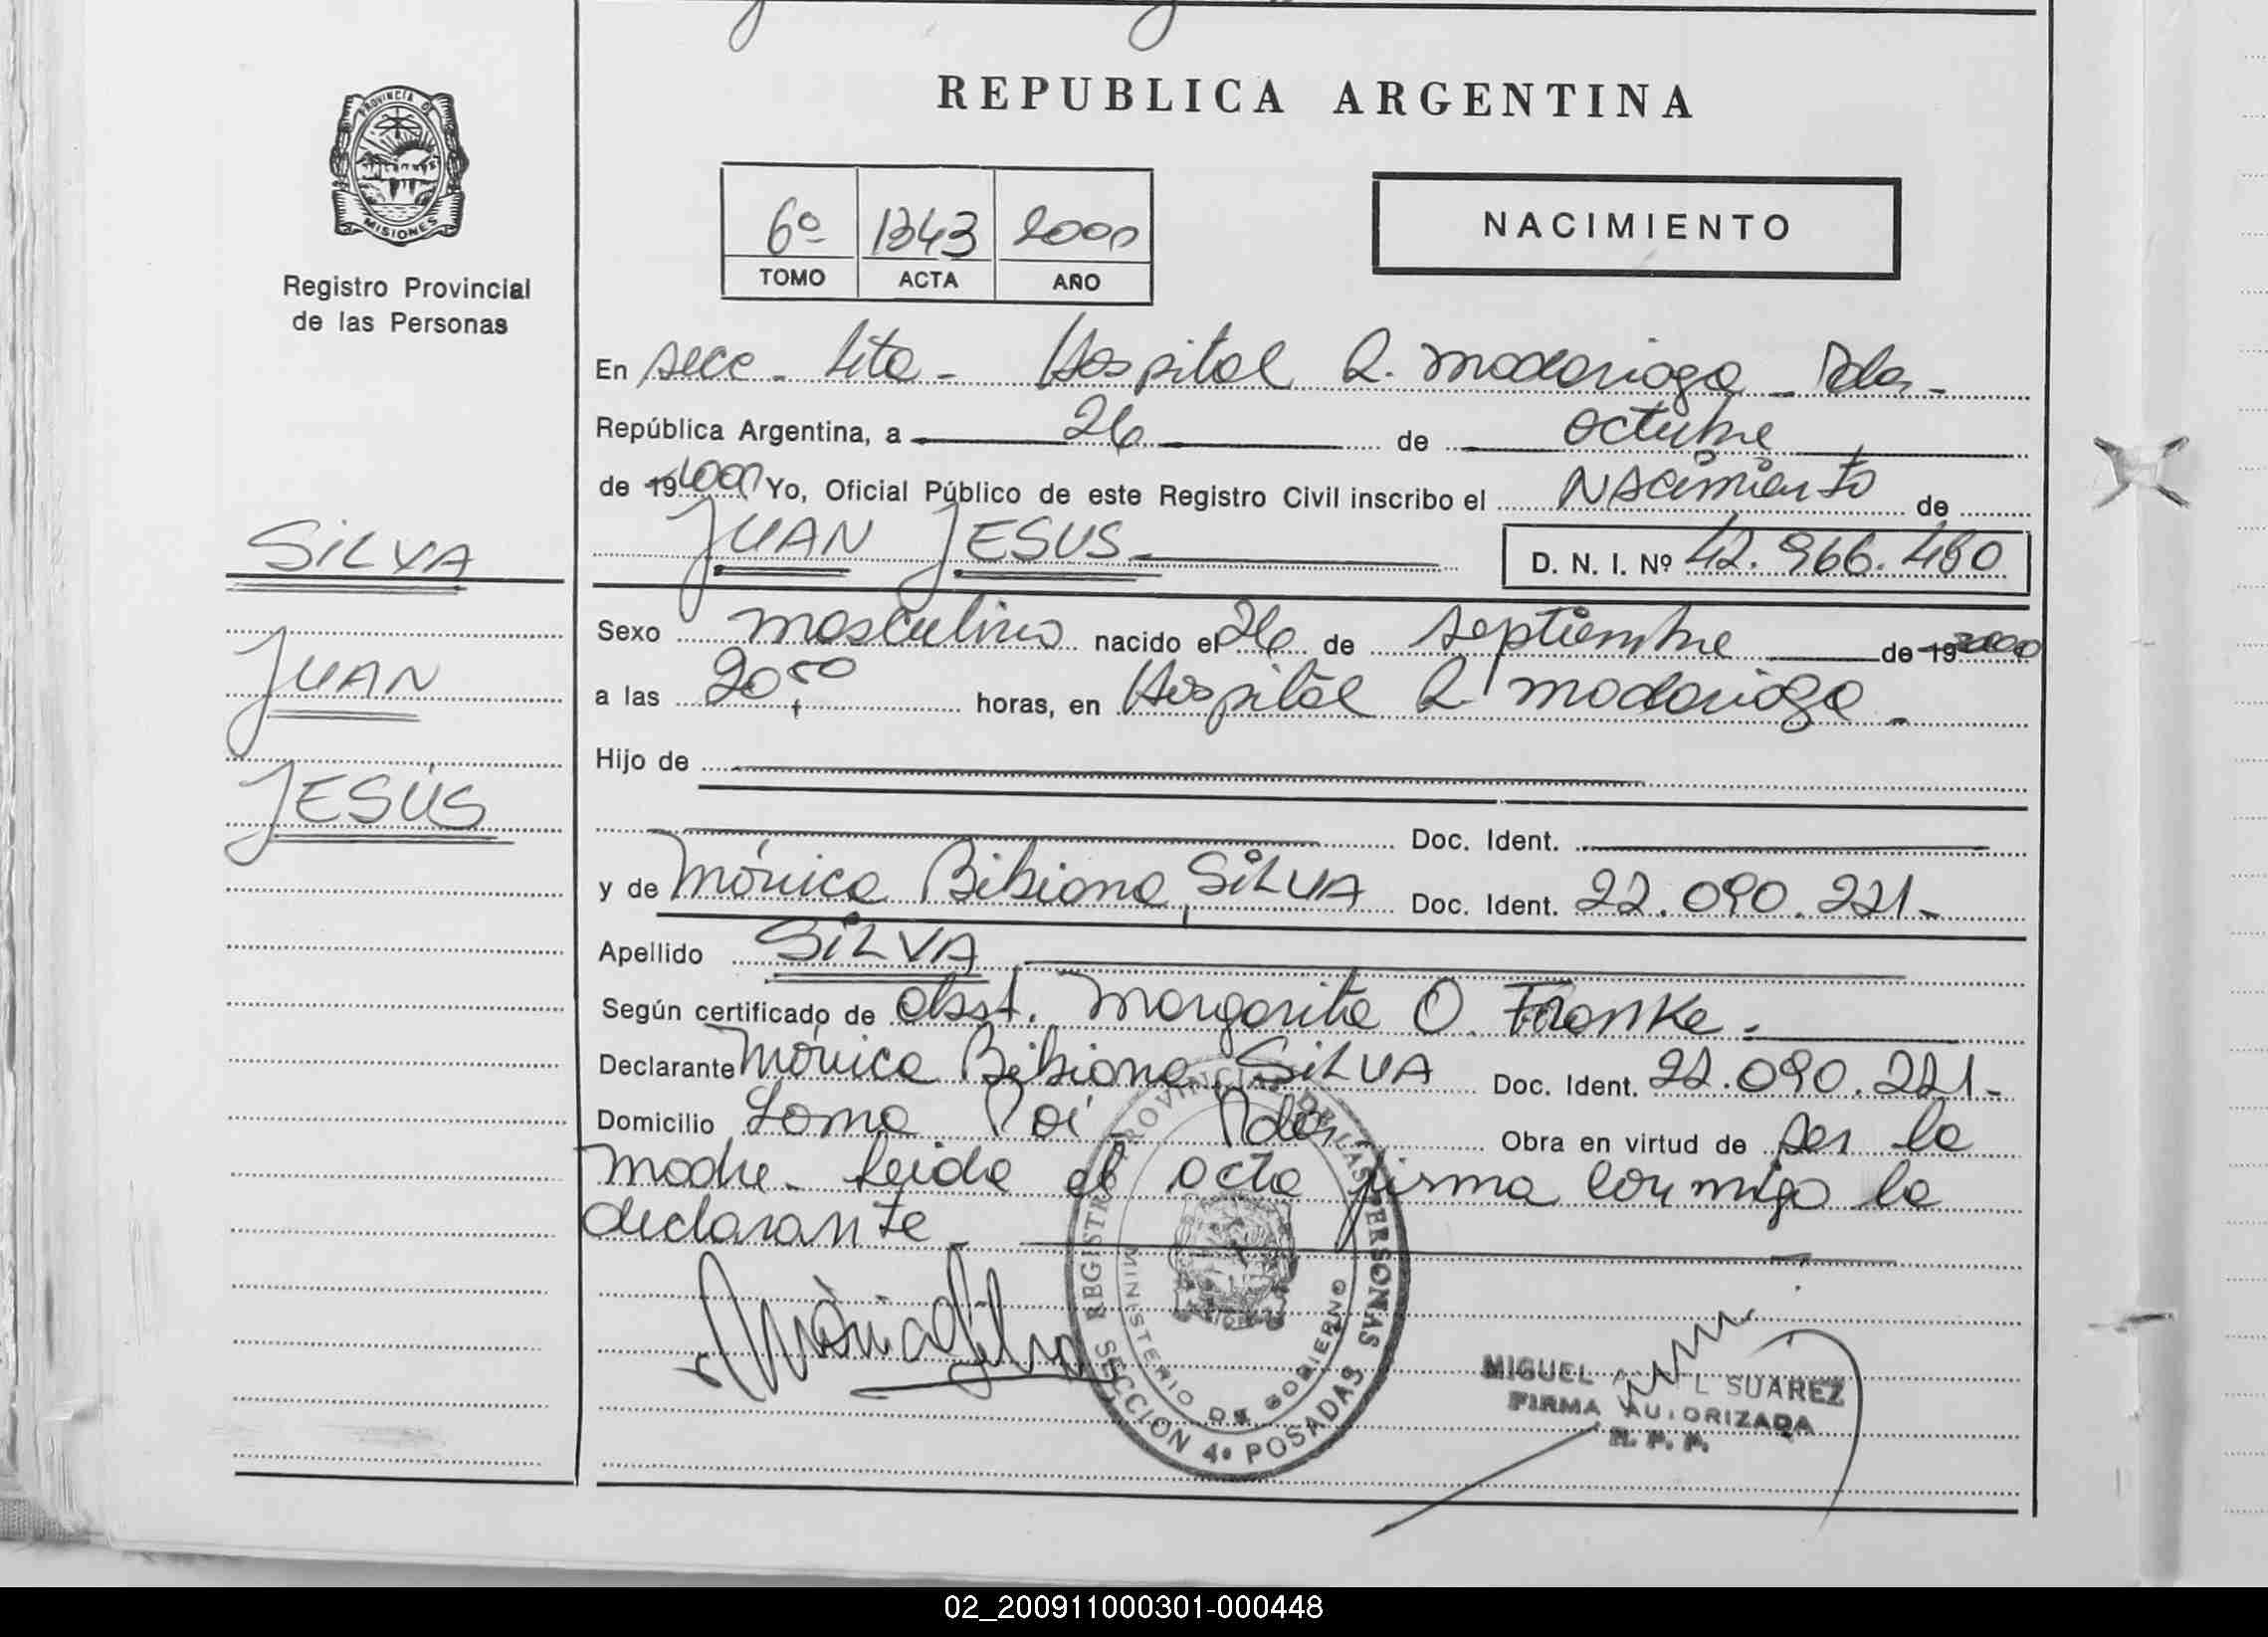 REPUBLICA ARGENTINA
PROVINCIA DE
MISIONES
Registro Provincial
de las Personas
6º 1343 2000
TOMO ACTA AÑO
NACIMIENTO
En secc. 4ta - Hospital R. Madariaga - Pdas -
República Argentina, a 26 de octubre
de 19 2000 Yo, Oficial Público de este Registro Civil inscribo el NAcimiento de
JUAN JESUS - D. N. I. Nº 42.966.480
SiLVA
JUAN
JESÚS
Sexo masculino nacido el 26 de septiembre de 19 2000
a las 20,50 horas, en Hospital R. Madariaga -
Hijo de
Doc. Ident.
y de Mónica Bibiana SiLVA Doc. Ident. 22.090.221-
Apellido SiLVA
Según certificado de obst. Margarita O. Franke.
Declarante Mónica Bibiana SiLVA Doc. Ident. 22.090.221-
Domicilio Loma Poí Pdas Obra en virtud de ser la
madre - Leida el acta firma conmigo la
declarante -
Mónica Silva
REGISTRO PROVINCIAL DE LAS PERSONAS
MINISTERIO DE GOBIERNO
SECCION 4ª POSADAS
MIGUEL SUAREZ
FIRMA AUTORIZADA
R. P. P.
02_200911000301-000448